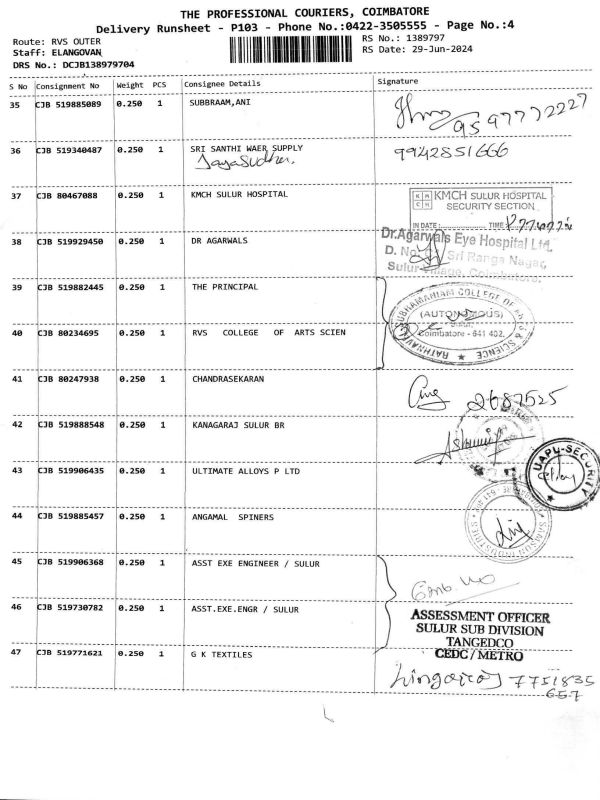 THE PROFESSIONAL COURIERS, COIMBATORE
Delivery Runsheet - P103 - Phone No.:0422-3505555 - Page No.:4
Route: RVS OUTER
RS No.: 1389797
Staff: ELANGOVAN
RS Date: 29-Jun-2024
DRS No.: DCJB138979704
S No Consignment No Weight PCS Consignee Details Signature
35 CJB 519885089 0.250 1 SUBBRAAM,ANI
9597772227
36 CJB 519340487 0.250 1 SRI SANTHI WAER SUPPLY
Jayasudha. 9942851666
37 CJB 80467088 0.250 1 KMCH SULUR HOSPITAL
KMCH SULUR HOSPITAL
SECURITY SECTION
IN DATE: TIME
38 CJB 519929450 0.250 1 DR AGARWALS
Dr.Agarwals Eye Hospital Ltd.
D. No. Sri Ranga Nagar,
Sulur Village, Coimbatore.
39 CJB 519882445 0.250 1 THE PRINCIPAL
RATHNAVEL SUBRAMANIAM COLLEGE OF ARTS & SCIENCE
(AUTONOMOUS)
Sulur,
Coimbatore - 641 402.
40 CJB 80234695 0.250 1 RVS COLLEGE OF ARTS SCIEN
41 CJB 80247938 0.250 1 CHANDRASEKARAN
2687525
42 CJB 519888548 0.250 1 KANAGARAJ SULUR BR
43 CJB 519906435 0.250 1 ULTIMATE ALLOYS P LTD
UAPL-SECURITY
44 CJB 519885457 0.250 1 ANGAMAL SPINERS
45 CJB 519906368 0.250 1 ASST EXE ENGINEER / SULUR
46 CJB 519730782 0.250 1 ASST.EXE.ENGR / SULUR
ASSESSMENT OFFICER
SULUR SUB DIVISION
TANGEDCO
CEDC/METRO
47 CJB 519771621 0.250 1 G K TEXTILES
7751835
657